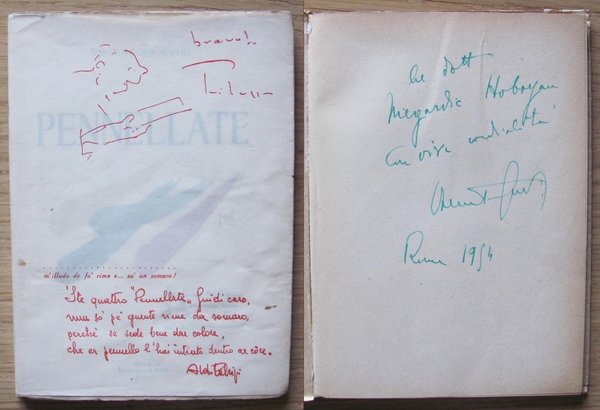 bravo!
Trilussa
PENNELLATE
m'illudo de fa' rime e... so' un somaro!
'Ste quattro "Pennellate„ Guidi caro,
nun sò pe' gnente rime da somaro,
perchè se vede bene dar colore,
che er pennello l'hai intinto dentro ar còre.
Aldo Fabrizi
Al dott
Hobogan
Con viva cordialità
Roma 1954